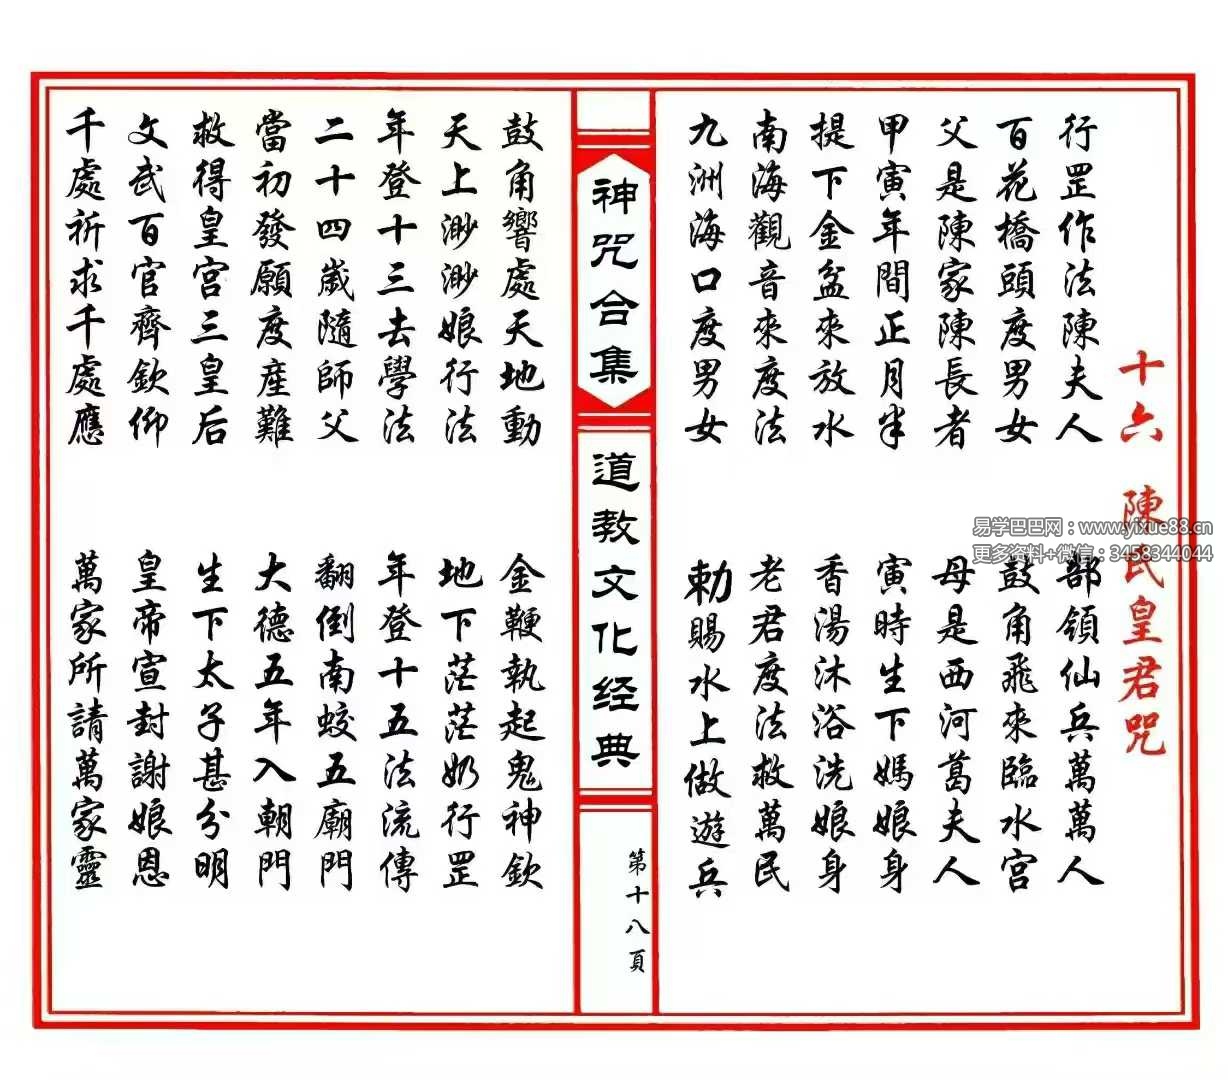 十六 陳氏皇君咒
行罡作法陳夫人 部領仙兵萬萬人
百花橋頭度男女 鼓角飛來臨水宮
父是陳家陳長者 母是西河葛夫人
甲寅年間正月半 寅時生下媽娘身
提下金盆來放水 香湯沐浴洗娘身
南海觀音來度法 老君度法救萬民
九洲海口度男女 勅賜水上做遊兵
神咒合集
道教文化经典
第十八頁
鼓角響處天地動 金鞭執起鬼神欽
天上渺渺娘行法 地下茫茫奶行罡
年登十三去學法 年登十五法流傳
二十四歲隨師父 翻倒南蛟五廟門
當初發願度産難 大德五年入朝門
救得皇宮三皇后 生下太子甚分明
文武百官齊欽仰 皇帝宣封謝娘恩
千處祈求千處應 萬家所請萬家靈
易学巴巴网：www.yixue88.cn
更多资料+微信：3458344044